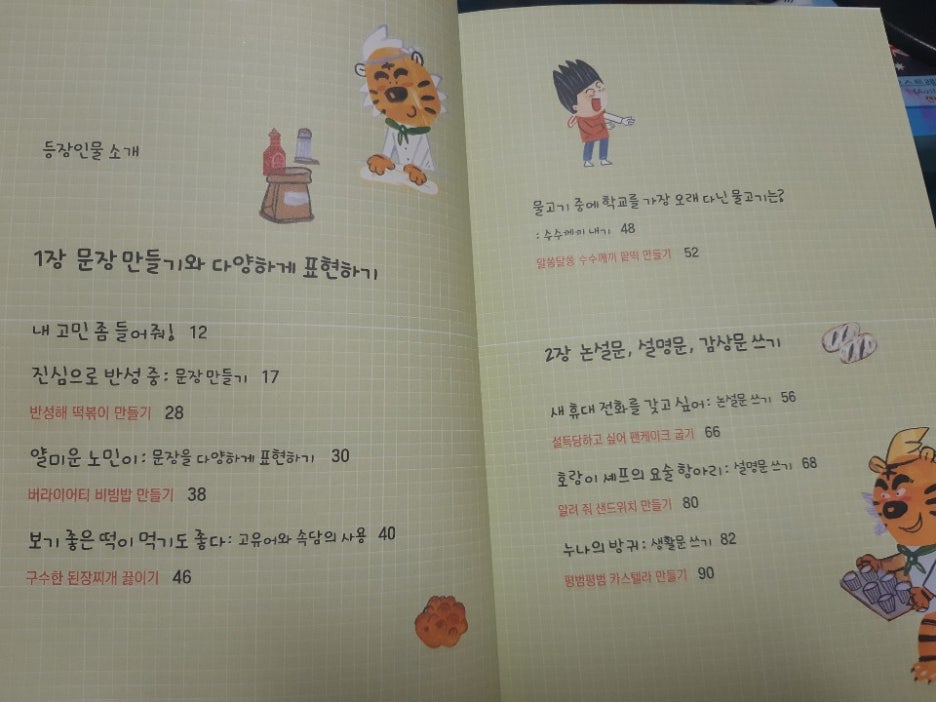 등장인물 소개
1장 문장 만들기와 다양하게 표현하기
내 고민 좀 들어줘! 12
진심으로 반성 중 : 문장 만들기 17
반성해 떡볶이 만들기 28
얄미운 노민이 : 문장을 다양하게 표현하기 30
버라이어티 비빔밥 만들기 38
보기 좋은 떡이 먹기도 좋다 : 고유어와 속담의 사용 40
구수한 된장찌개 끓이기 46
물고기 중에 학교를 가장 오래 다닌 물고기는?
: 수수께끼 내기 48
알쏭달쏭 수수께끼 팥떡 만들기 52
2장 논설문, 설명문, 감상문 쓰기
새 휴대 전화를 갖고 싶어 : 논설문 쓰기 56
설득당하고 싶어 팬케이크 굽기 66
호랑이 셰프의 요술 항아리 : 설명문 쓰기 68
알려 줘 샌드위치 만들기 80
누나의 방귀 : 생활문 쓰기 82
평범평범 카스텔라 만들기 90